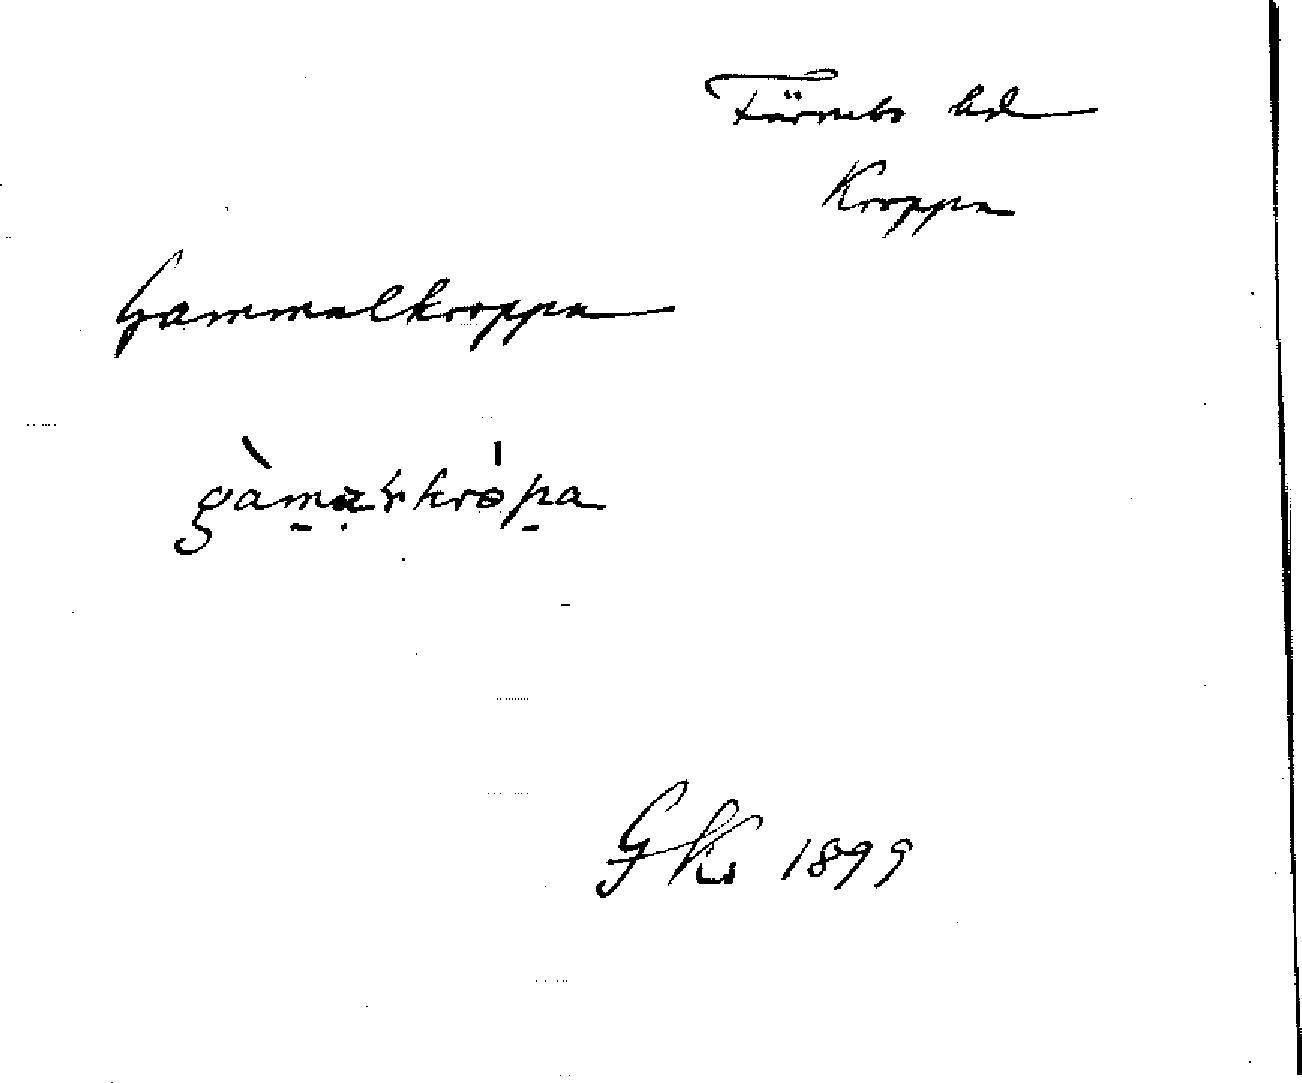 Färnebo hd
Kroppa
Gammalkroppa
gàmaɽkròpa
GKs 1899